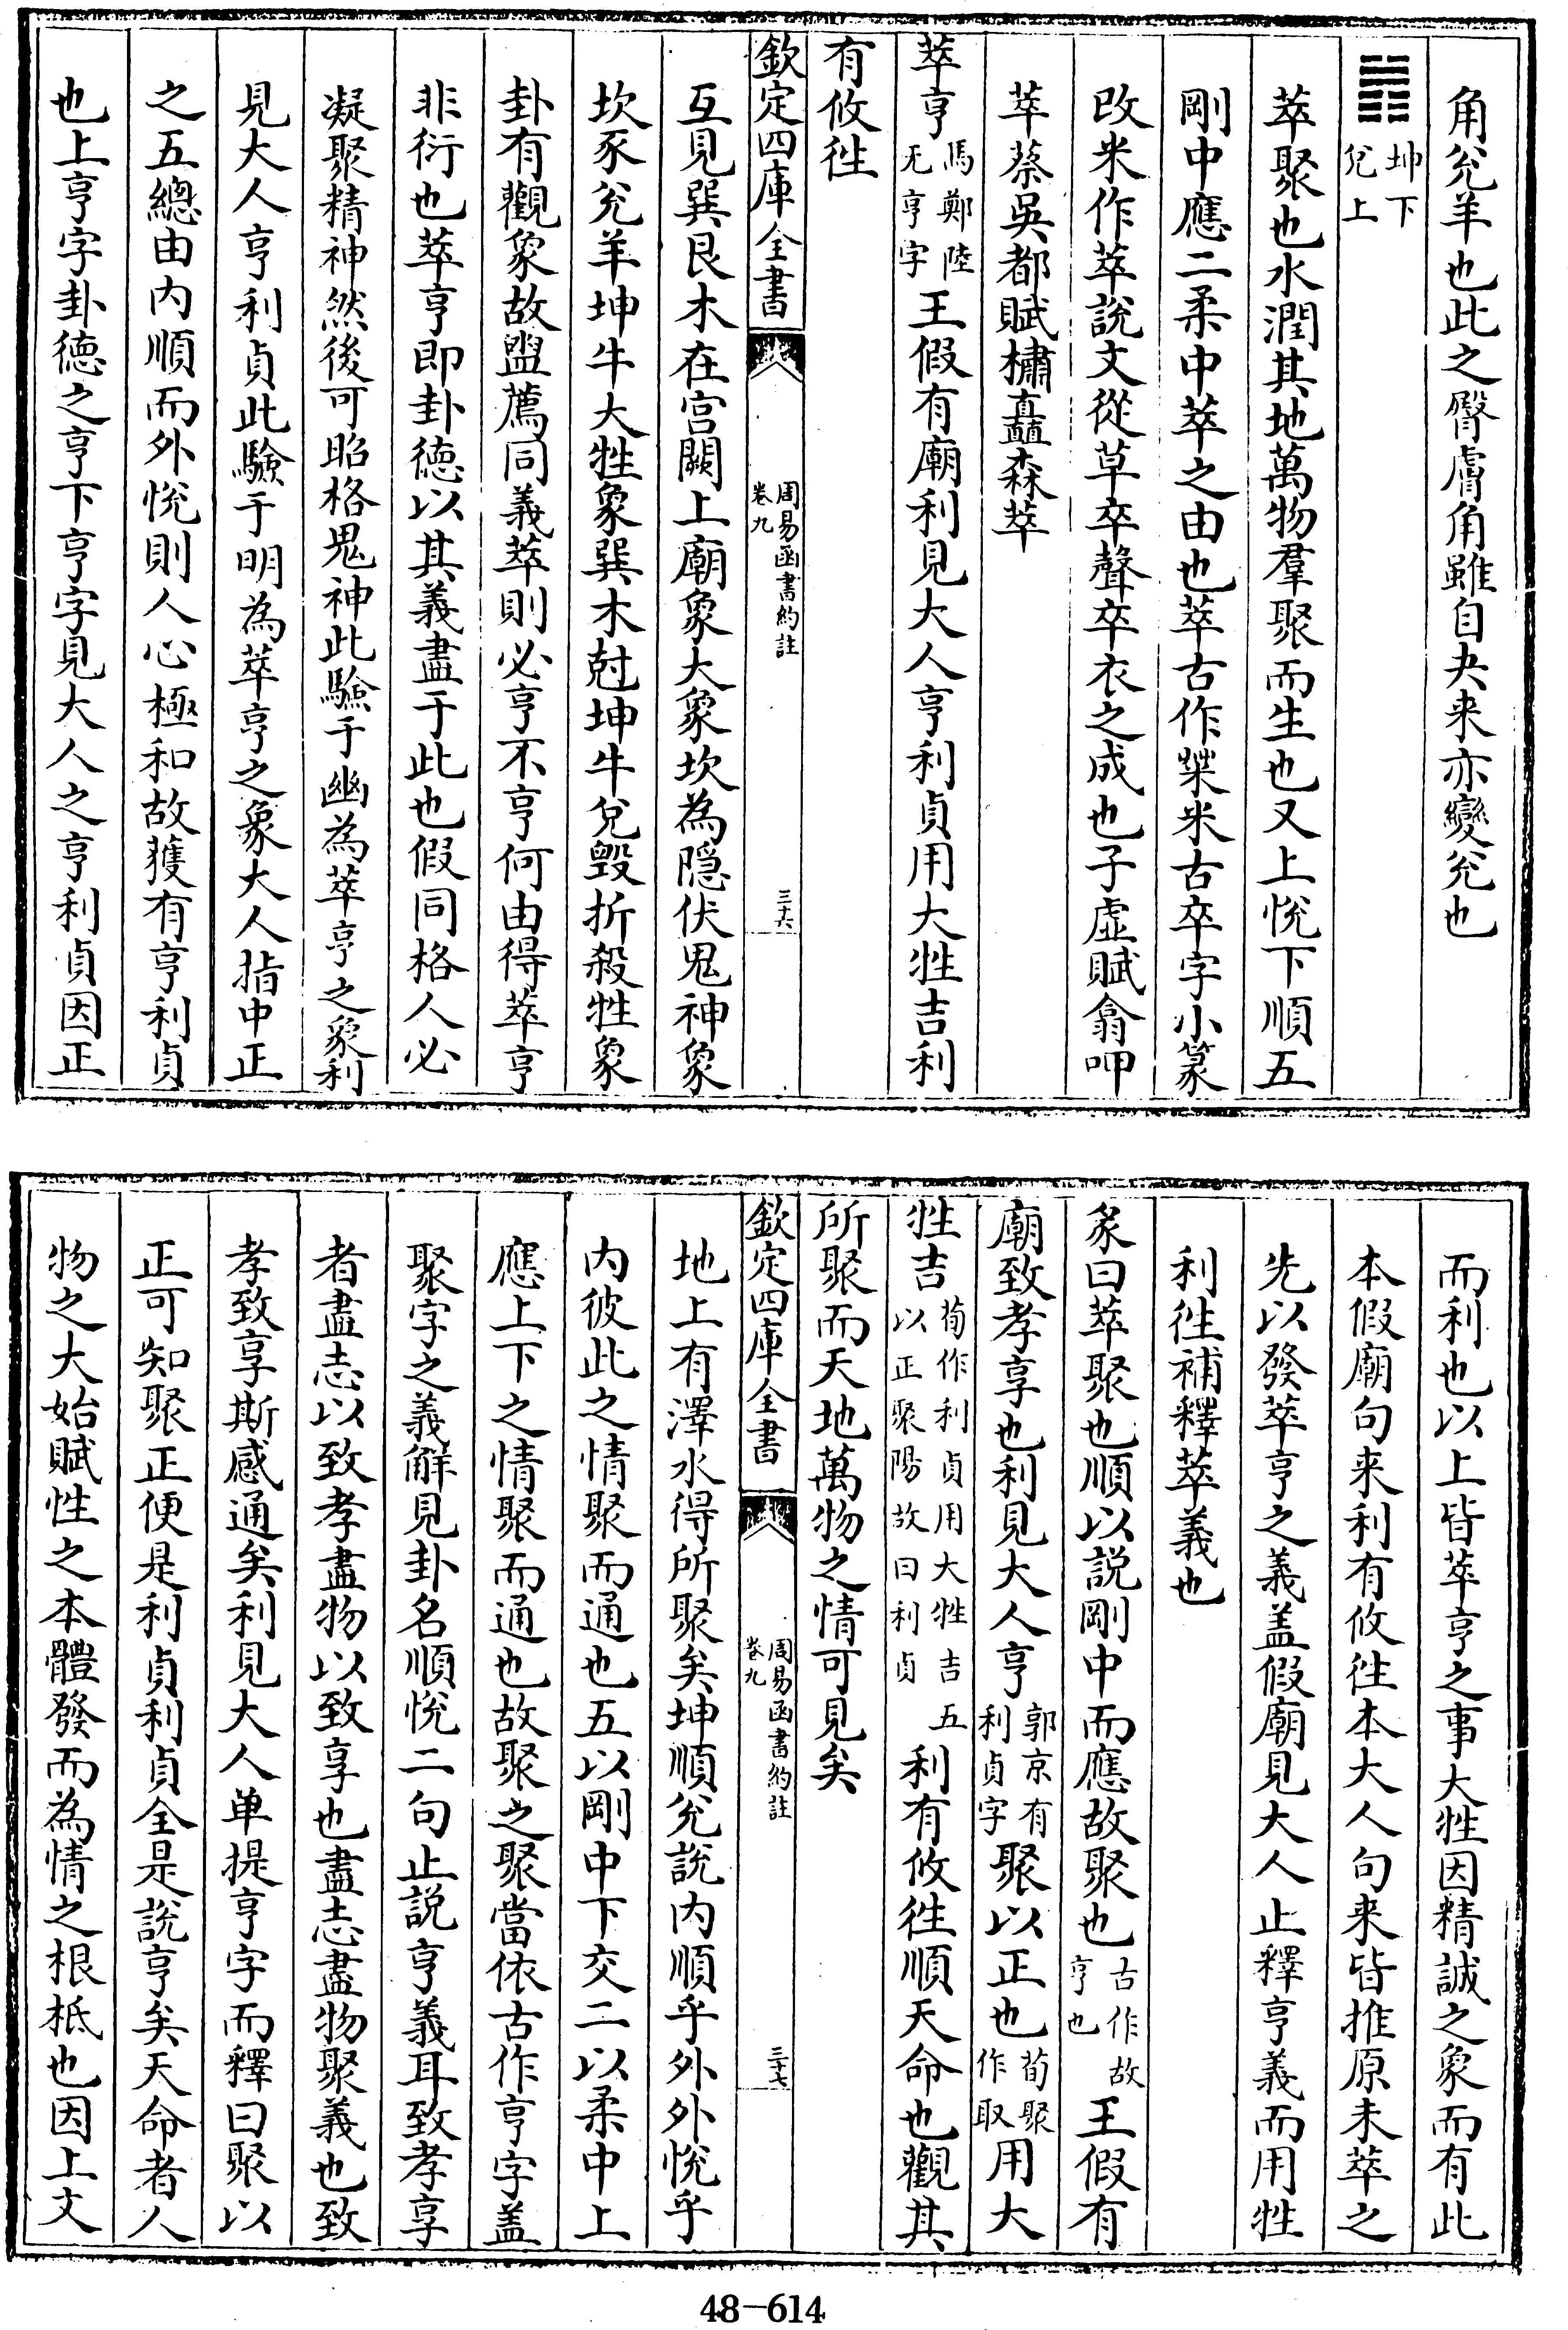 角兊羊也此之臀膚角雖自夬来亦變兊也
䷬坤下兊上
萃聚也水潤其地萬物羣聚而生也又上悅下順五
剛中應二柔中萃之由也萃古作𣡸米古卒字小篆
改米作萃說文從草卒聲卒衣之成也子虛賦翕呷
萃蔡吳都賦橚矗森萃
萃亨馬鄭陸无亨字王假有廟利見大人亨利貞用大牲吉利
有攸徃
欽定四庫全書
周易函書約註
卷九
三十六
互見巽艮木在宫闕上廟象大象坎為隠伏鬼神象
坎豕兊羊坤牛大牲象巽木尅坤牛兊毀折殺牲象
卦有觀象故盥薦同義萃則必亨不亨何由得萃亨
非衍也萃亨即卦徳以其義盡于此也假同格人必
凝聚精神然後可昭格鬼神此驗于幽為萃亨之象利
見大人亨利貞此驗于明為萃亨之象大人指中正
之五總由内順而外悅則人心極和故獲有亨利貞
也上亨字卦徳之亨下亨字見大人之亨利貞因正
而利也以上皆萃亨之事大牲因精誠之象而有此
本假廟句来利有攸徃本大人句来皆推原未萃之
先以發萃亨之義盖假廟見大人止釋亨義而用牲
利徃補釋萃義也
彖曰萃聚也順以説剛中而應故聚也古作故亨也王假有
廟致孝享也利見大人亨郭京有利貞字聚以正也荀聚作取用大
牲吉荀作利貞用大牲吉五以正聚陽故曰利貞利有攸徃順天命也觀其
所聚而天地萬物之情可見矣
欽定四庫全書
周易函書約註
卷九
三十七
地上有澤水得所聚矣坤順兊說内順乎外外悅乎
内彼此之情聚而通也五以剛中下交二以柔中上
應上下之情聚而通也故聚之聚當依古作亨字盖
聚字之義解見卦名順悅二句止説亨義耳致孝享
者盡志以致孝盡物以致享也盡志盡物聚義也致
孝致享斯感通矣利見大人单提亨字而釋曰聚以
正可知聚正便是利貞利貞全是說亨矣天命者人
物之大始賦性之本體發而為情之根柢也因上文
48-614